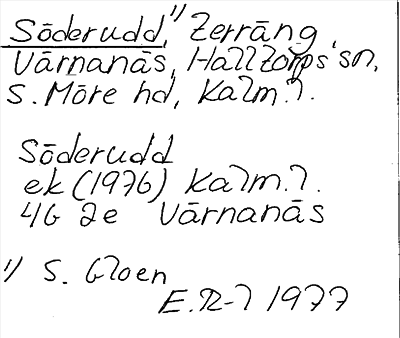 Söderudd,¹⁾ terräng
Värnanäs, Halltorps sn,
S. Möre hd, Kalm. l.
Söderudd
ek (1976) Kalm. l.
4G 2e Värnanäs
¹⁾ S. Gloen
E.R-l 1977